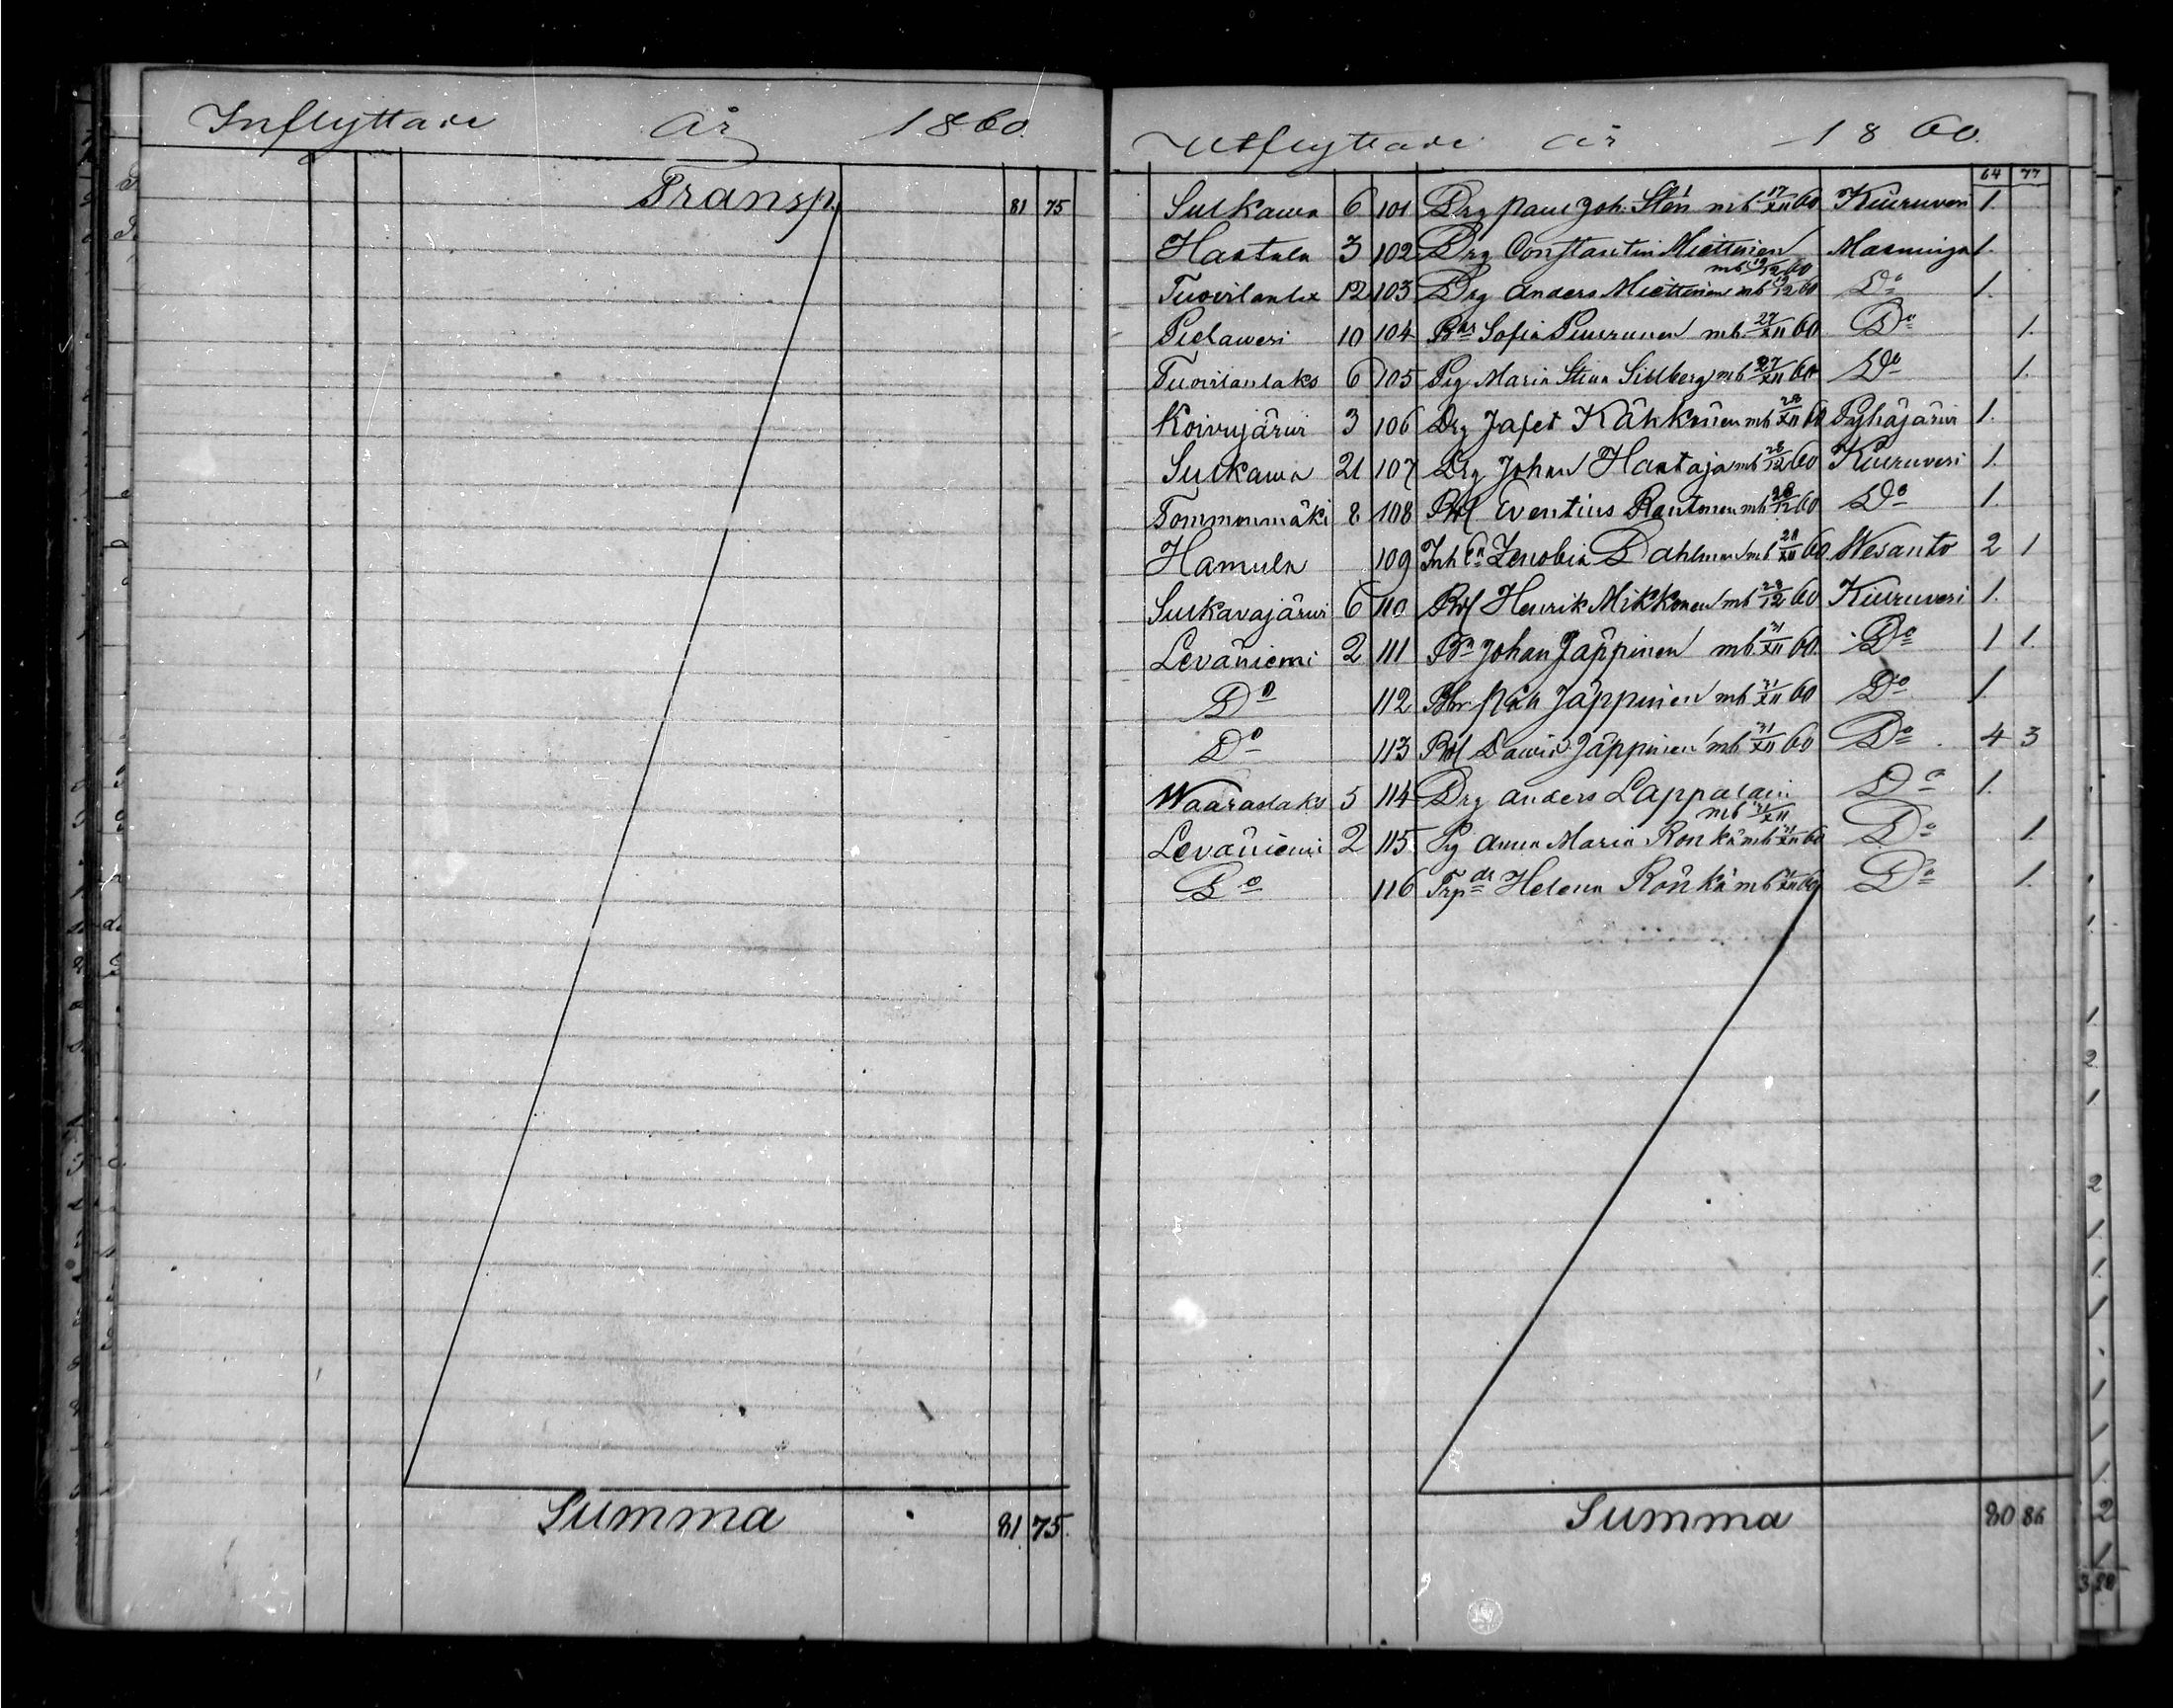 Inflyttade År 1860.
Transp. 81 75
Summa 81 75.
Utflyttade år 1860.
64 77
Sulkawa 6 101 Drg Paul Joh. Stén mb 17/XII 60 Kiuruvesi 1.
Haatala 3 102 Drg Constantin Miettinen mb 19/12 60 Maaninga 1.
Tuovilanlax 12 103 Drg Anders Miettinen mb 19/12 60 Do 1.
Pielawesi 10 104 Sofia mb. 27/XII 60 Do 1.
Tuovilanlaks 6 105 Pig Maria Stina Sillberg mb 27/XII 60 Do 1.
Koivujärvi 3 106 Drg Jafet Kähkönen mb 28/XII 60 Pyhäjärvi 1.
Sulkawa 21 107 Drg Johan Haataja mb 28/12 60 Kiuruvesi 1.
Tommonmäki 8 108 Eventius Rautonen mb 28/12 60 Do 1.
Hamula 109 Zenobia Dahlman mb 28/XII 60 Wesanto 2 1
Sulkavajärvi 6 110 Henrik Mikkonen mb 28/12 60 Kiuruvesi 1.
Leväniemi 2 111 Johan Jäppinen mb. 31/XII 60. Do 1 1.
Do 112 Jäppinen mb 31/XII 60 Do 1.
Do 113 David Jäppinen mb 31/XII 60 Do 4 3
Waaraslaks 5 114 Drg Anders Lappalain mb 31/XII Do 1.
Leväniemi 2 115 Pig Anna Maria Ronkä mb 31/XII 60 Do 1.
Do 116 Helena Rönkä mb 31/XII 60 Do 1.
Summa 80 86